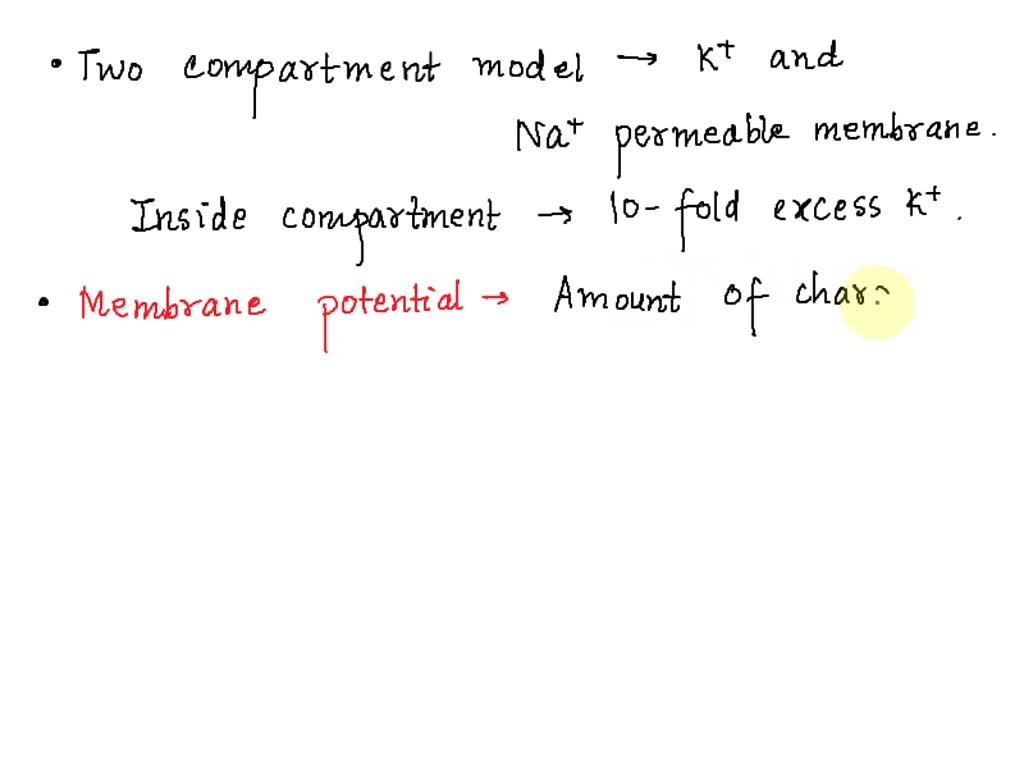 • Two compartment model → K⁺ and
Na⁺ permeable membrane.
Inside compartment → 10-fold excess K⁺.
• Membrane potential → Amount of